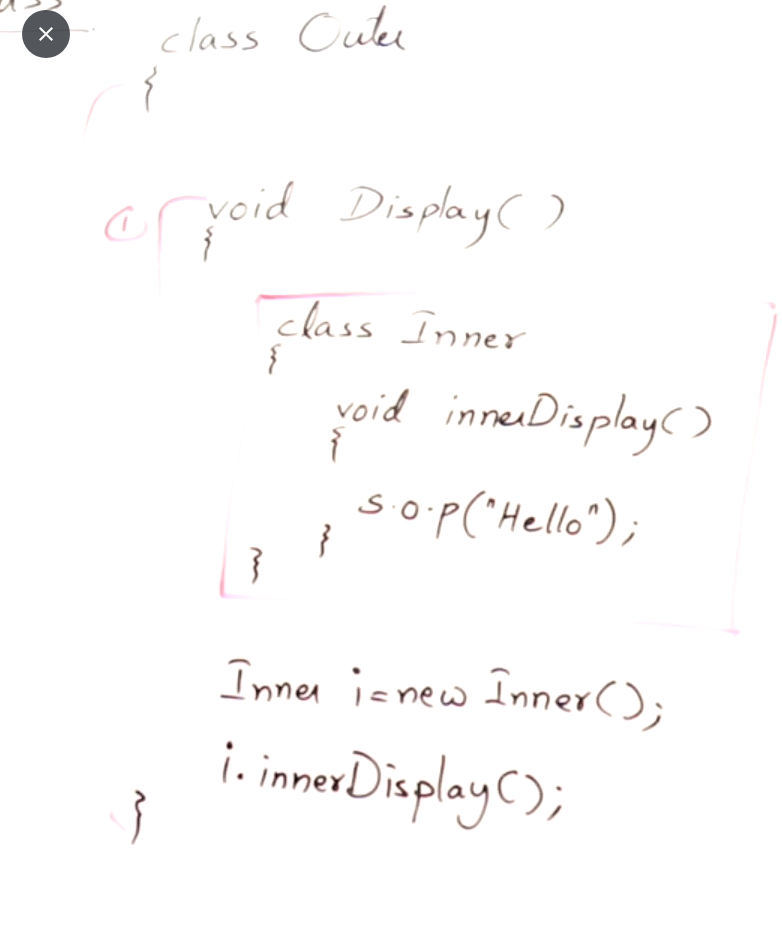 class Outer
{
① void Display( )
{
class Inner
{
void innerDisplay()
{
s.o.p("Hello");
}
}
Inner i=new Inner();
i.innerDisplay();
}